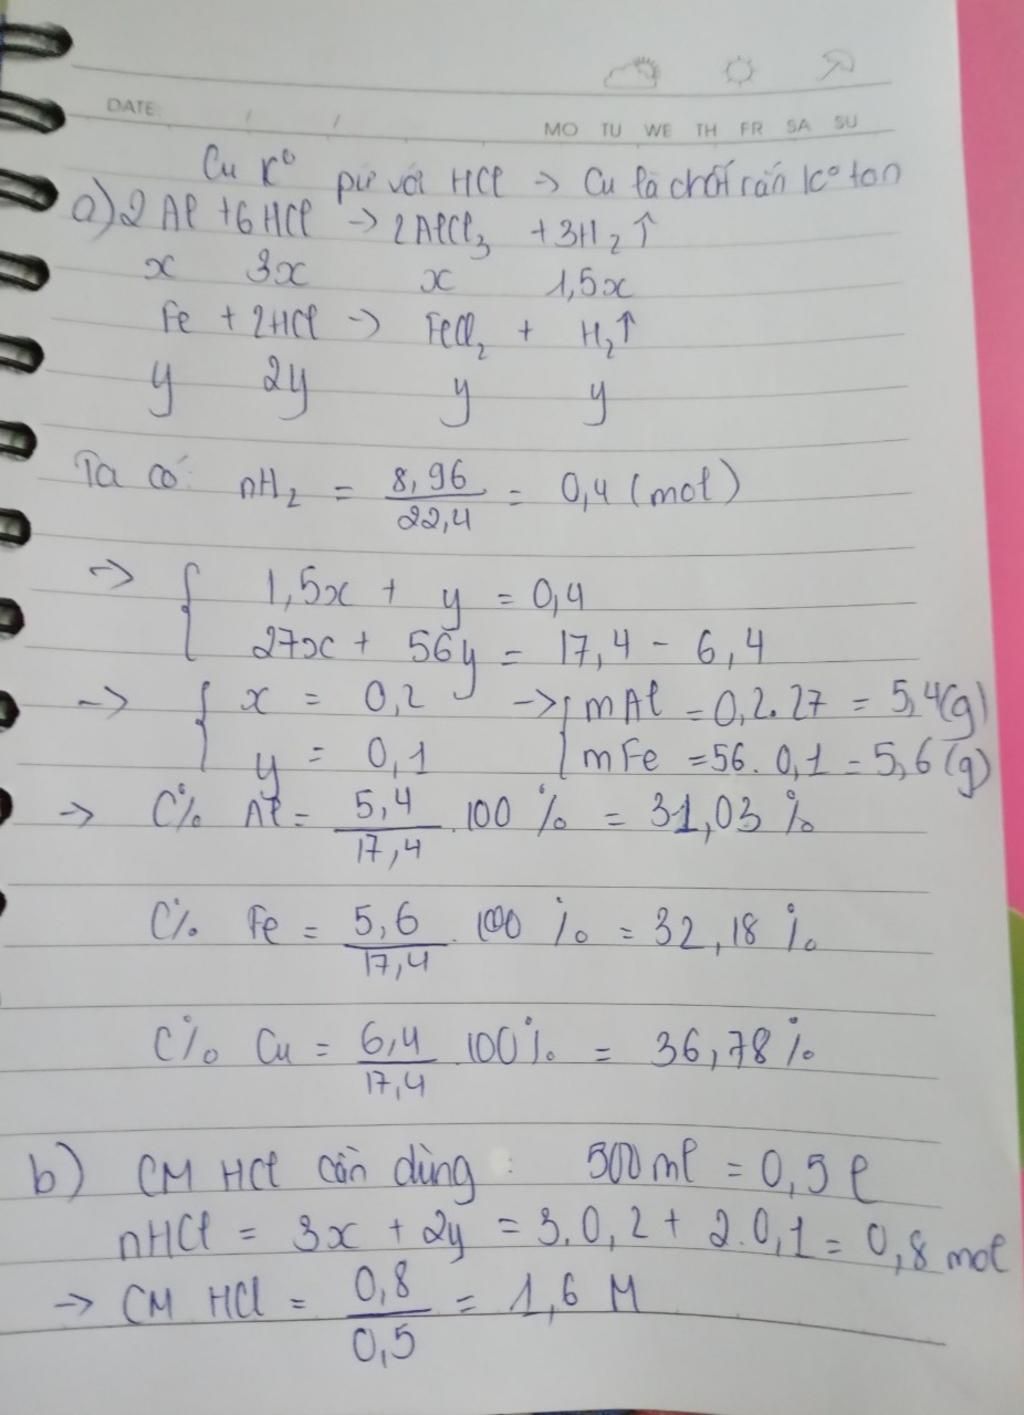 DATE: / /
MO TU WE TH FR SA SU
Cu k° pứ với HCl → Cu là chất rắn k° tan
a) 2Al + 6HCl → 2AlCl₃ + 3H₂↑
x 3x x 1,5x
Fe + 2HCl → FeCl₂ + H₂↑
y 2y y y
Ta có: nH₂ = 8,96/22,4 = 0,4 (mol)
→ { 1,5x + y = 0,4
27x + 56y = 17,4 - 6,4
→ { x = 0,2 → { mAl = 0,2.27 = 5,4(g)
y = 0,1 mFe = 56.0,1 = 5,6(g)
→ C% Al = 5,4/17,4 .100% = 31,03%
C% Fe = 5,6/17,4 .100% = 32,18%
C% Cu = 6,4/17,4 .100% = 36,78%
b) CM HCl cần dùng: 500ml = 0,5l
nHCl = 3x + 2y = 3.0,2 + 2.0,1 = 0,8 mol
→ CM HCl = 0,8/0,5 = 1,6 M